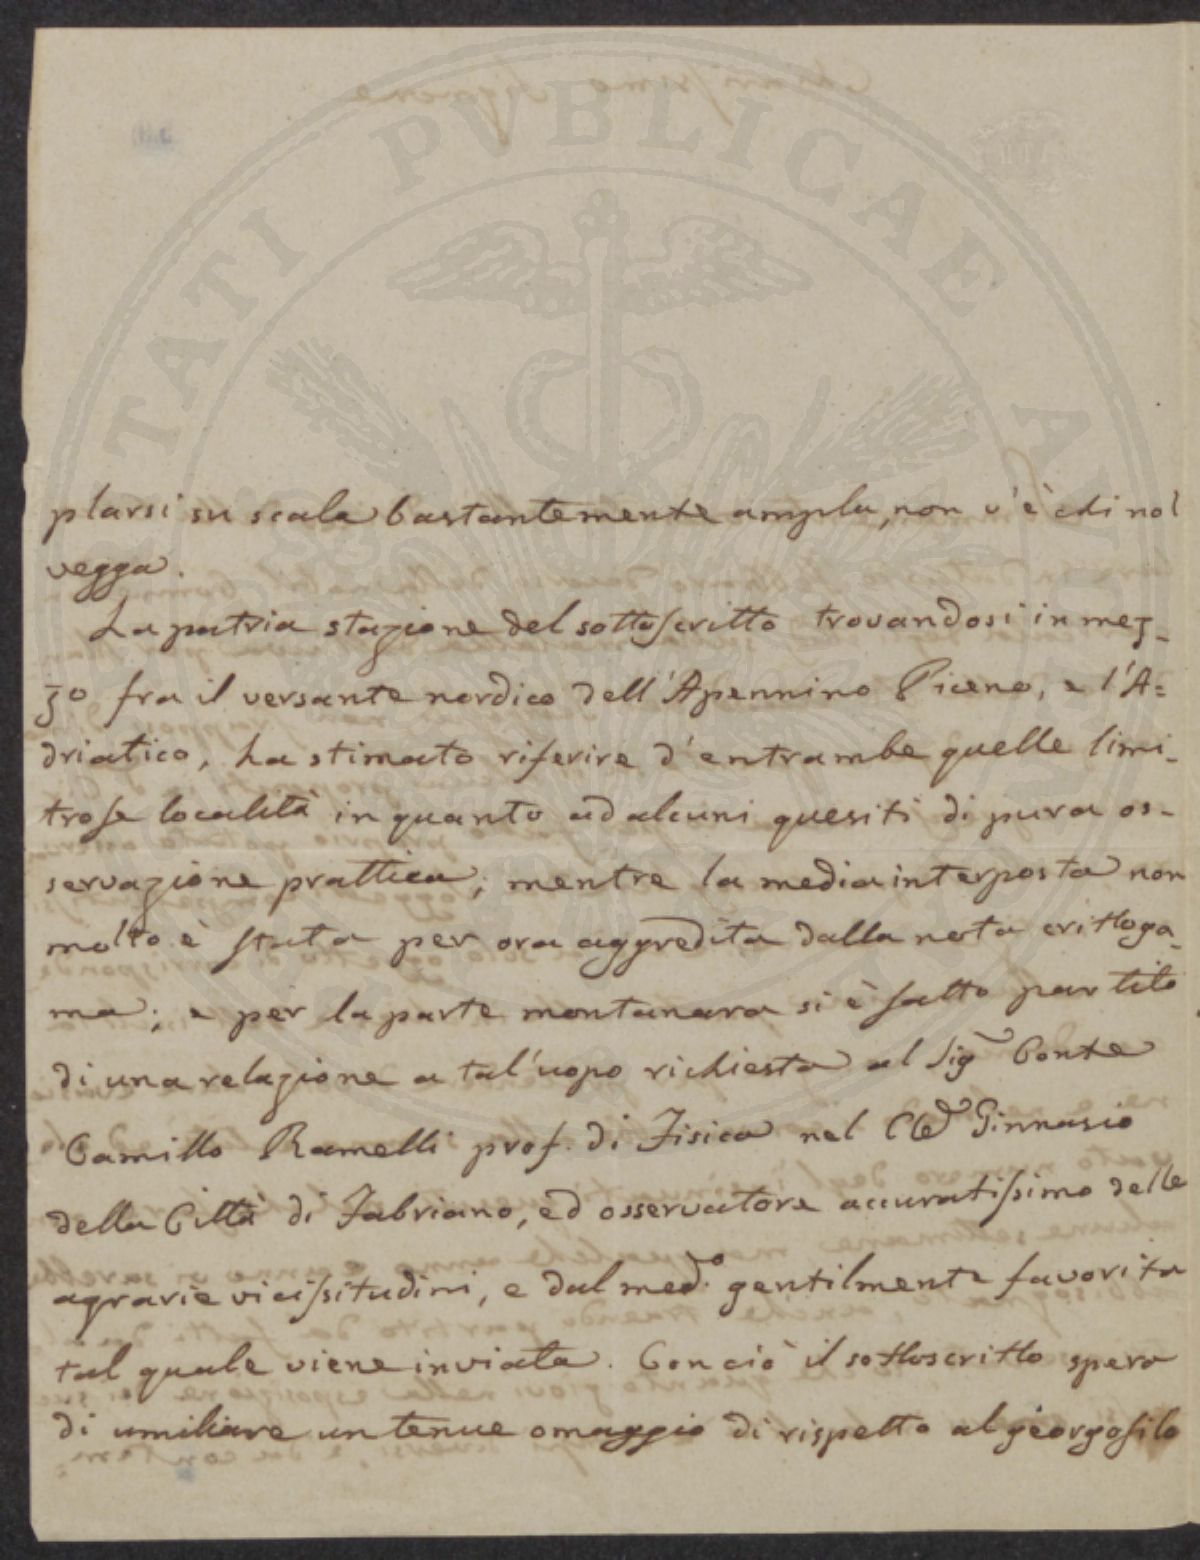 TATI PVBLICAE AV
plarsi su scala bastantemente ampla, non v'è chi nol
vegga.
La patria stazione del sottoscritto trovandosi in mez-
zo fra il versante nordico dell'Apennino Piceno, e l'A=
driatico, ha stimato riferire d'entrambe quelle limi-
trofe località in quanto ad alcuni quesiti di pura os-
servazione prattica; mentre la media interposta non
molto è stata per ora aggredita dalla nota crittoga-
ma; e per la parte montanara si è fatto partito
di una relazione a tal'uopo richiesta al Sig.r Conte
Camillo Ramelli prof. di Fisica nel Ginnasio
della Città di Fabriano, ed osservatore accuratissimo delle
agrarie vicissitudini, e dal med.o gentilmente favorita
tal quale viene inviata. Con ciò il sottoscritto spera
di umiliare un tenue omaggio di rispetto al georgofilo